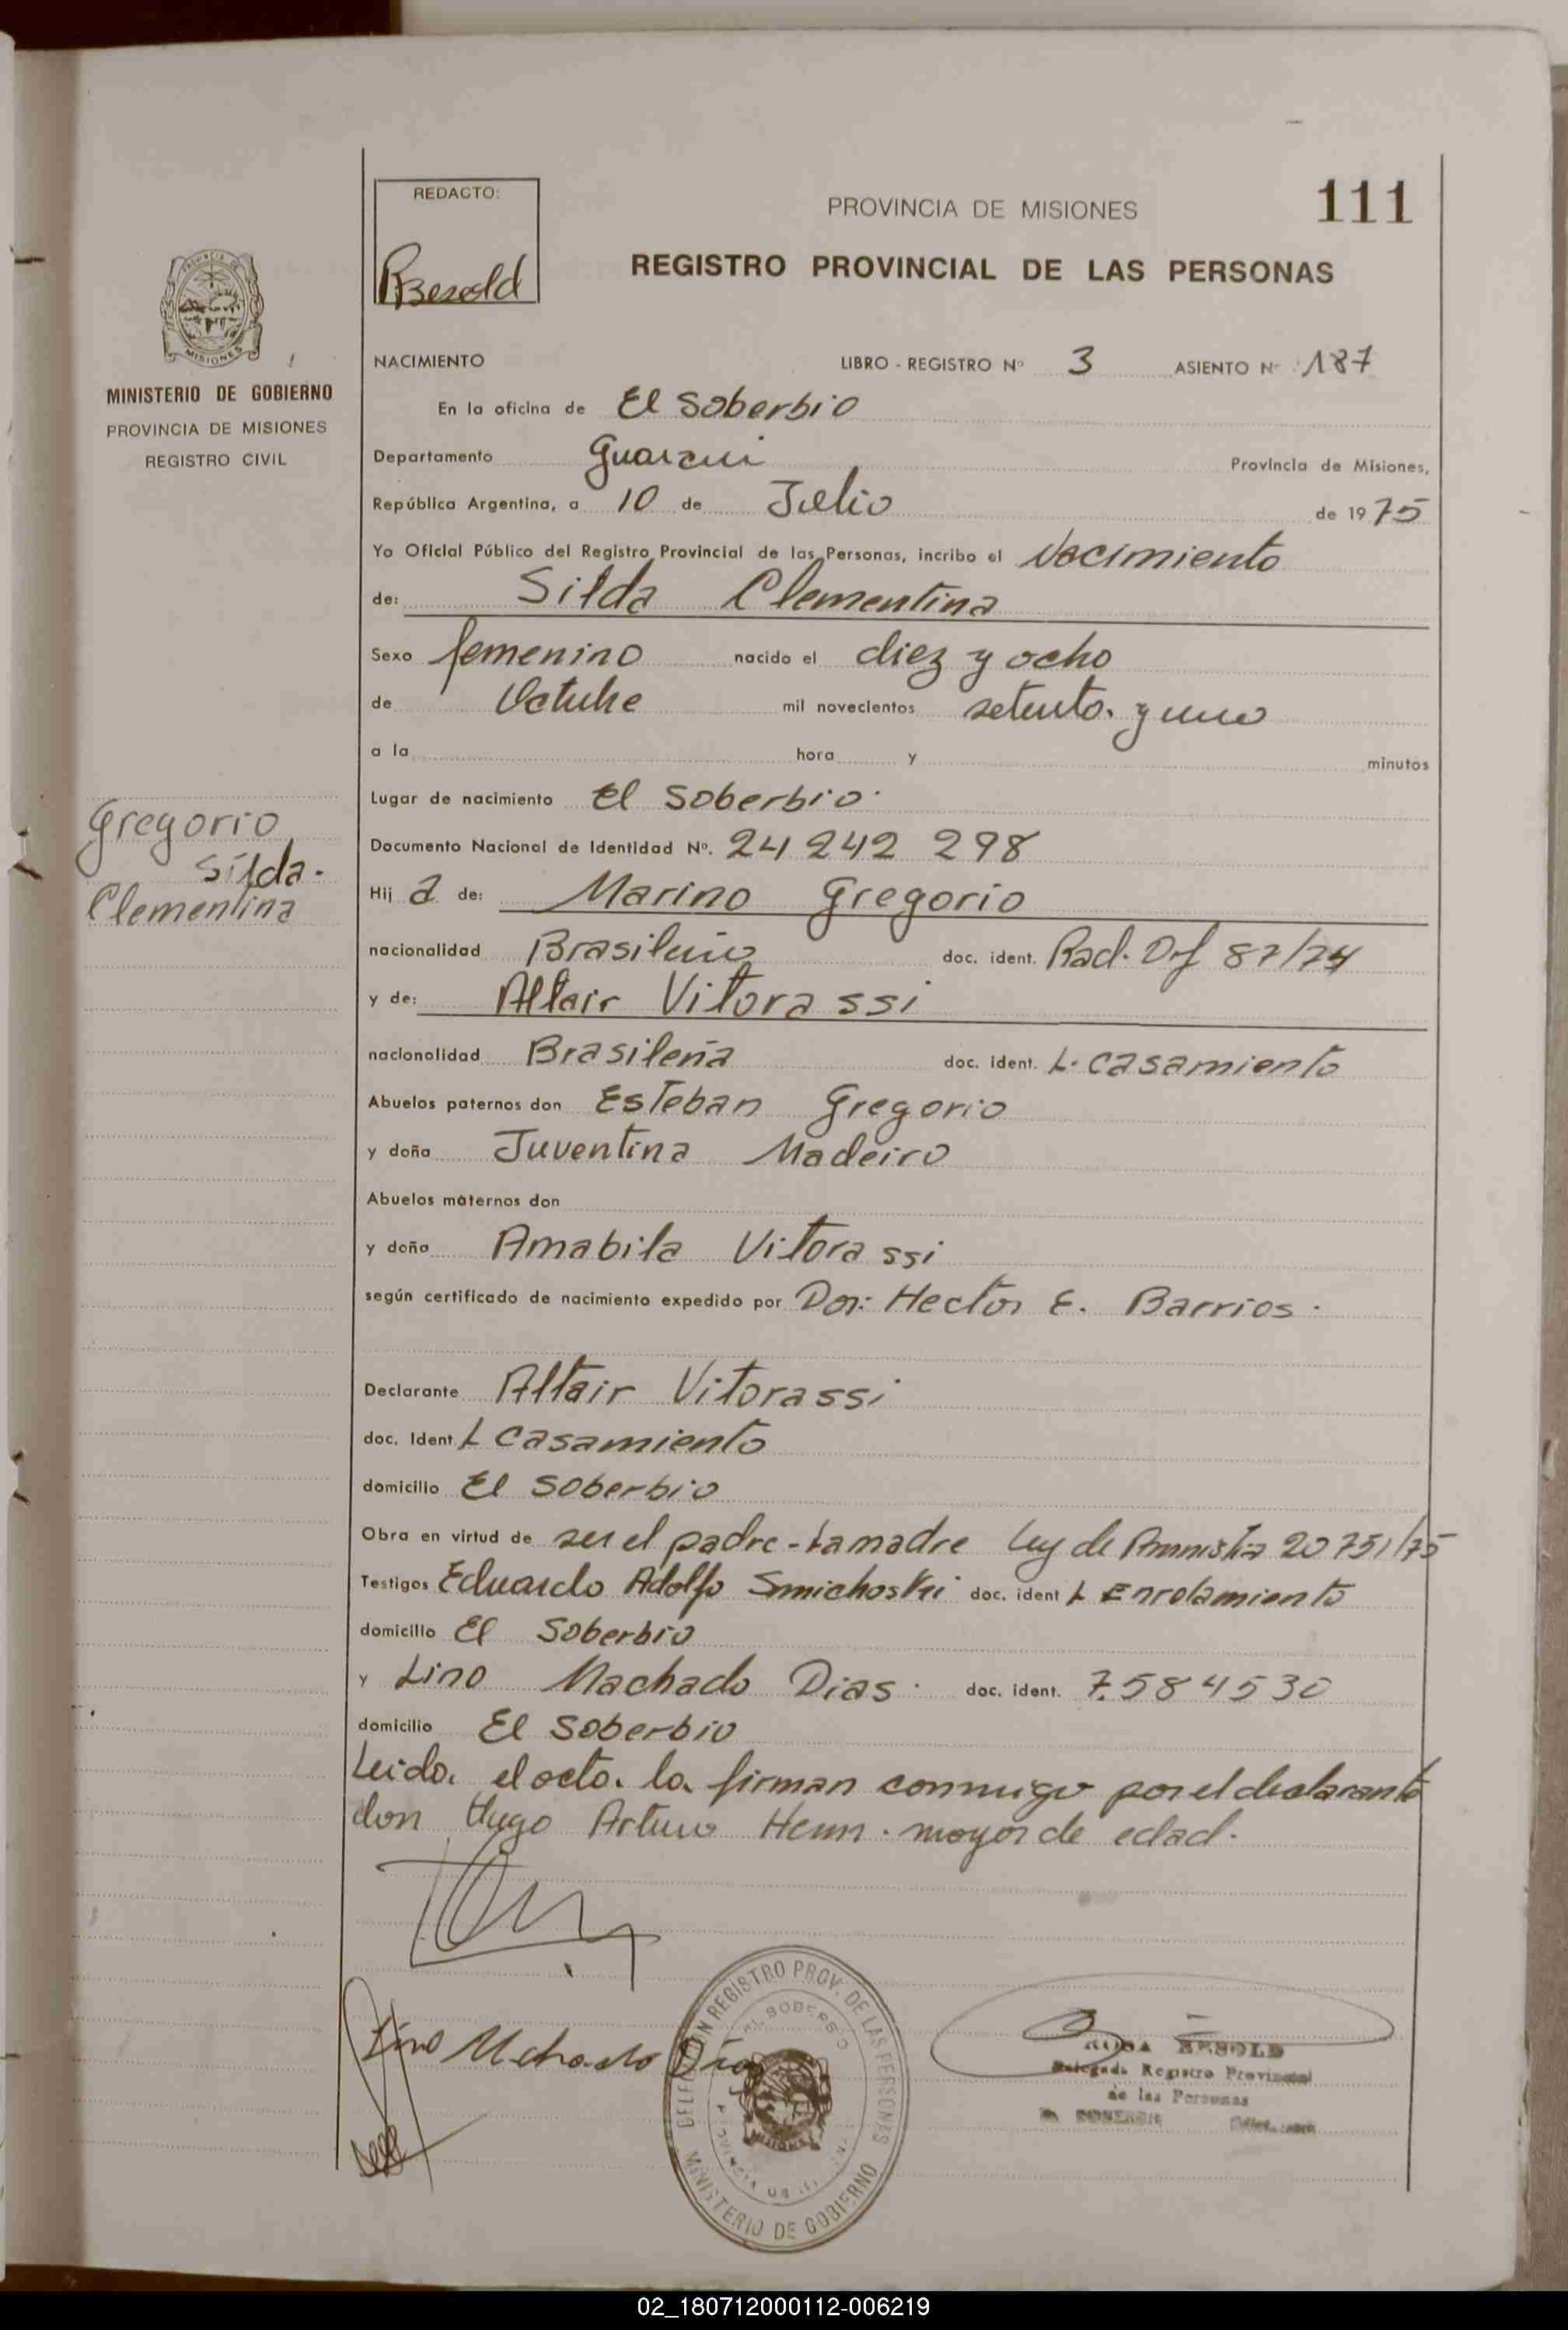 REDACTO:
PROVINCIA DE MISIONES
111
RBesold
REGISTRO PROVINCIAL DE LAS PERSONAS
MISIONES
MINISTERIO DE GOBIERNO
PROVINCIA DE MISIONES
REGISTRO CIVIL
NACIMIENTO LIBRO - REGISTRO Nº 3 ASIENTO Nº 187
En la oficina de El Soberbio
Departamento Guarani Provincia de Misiones,
República Argentina, a 10 de Julio de 1975
Yo Oficial Público del Registro Provincial de las Personas, incribo el Nacimiento
de: Silda Clementina
Sexo femenino nacido el diez y ocho
de Octubre mil novecientos setenta y uno
a la hora y minutos
Lugar de nacimiento El Soberbio.
Gregorio
Silda.
Clementina
Documento Nacional de Identidad Nº. 24 242 298
Hij a de: Marino Gregorio
nacionalidad Brasileño doc. ident. Rad. Def 87/74
y de: Altair Vitorassi
nacionalidad Brasileña doc. ident. L. casamiento
Abuelos paternos don Esteban Gregorio
y doña Juventina Madeiro
Abuelos maternos don
y doña Amabila Vitorassi
según certificado de nacimiento expedido por Dor: Hector E. Barrios.
Declarante Altair Vitorassi
doc. Ident L casamiento
domicilio El Soberbio
Obra en virtud de ser el padre - La madre Ley de Amnistia 20751/75
Testigos Eduardo Adolfo Smichoski doc. ident L Enrolamiento
domicilio El Soberbio
y Lino Machado Dias. doc. ident. 7.584530
domicilio El Soberbio
Leida el acta. la firman conmigo por el declarante
don Hugo Arturo Henn. mayor de edad.
Lino Machado Dias
DELEGACION REGISTRO PROV. DE LAS PERSONAS
EL SOBERBIO
MISIONES
MINISTERIO DE GOBIERNO
ROSA BESOLD
Delegada Registro Provincial
de las Personas
02_180712000112-006219